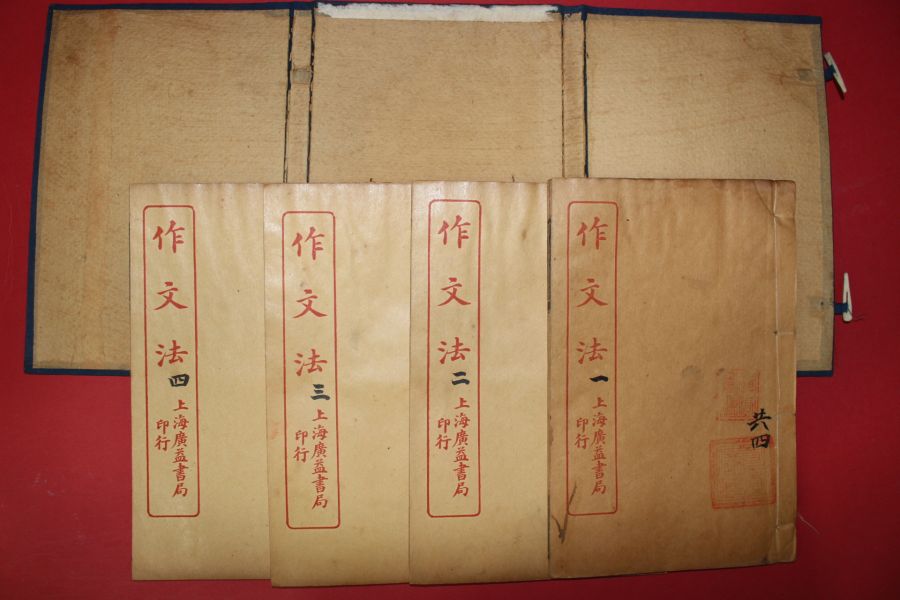 作文法一
上海廣益書局
印行
共四
作文法二
上海廣益書局
印行
作文法三
上海廣益書局
印行
作文法四
上海廣益書局
印行